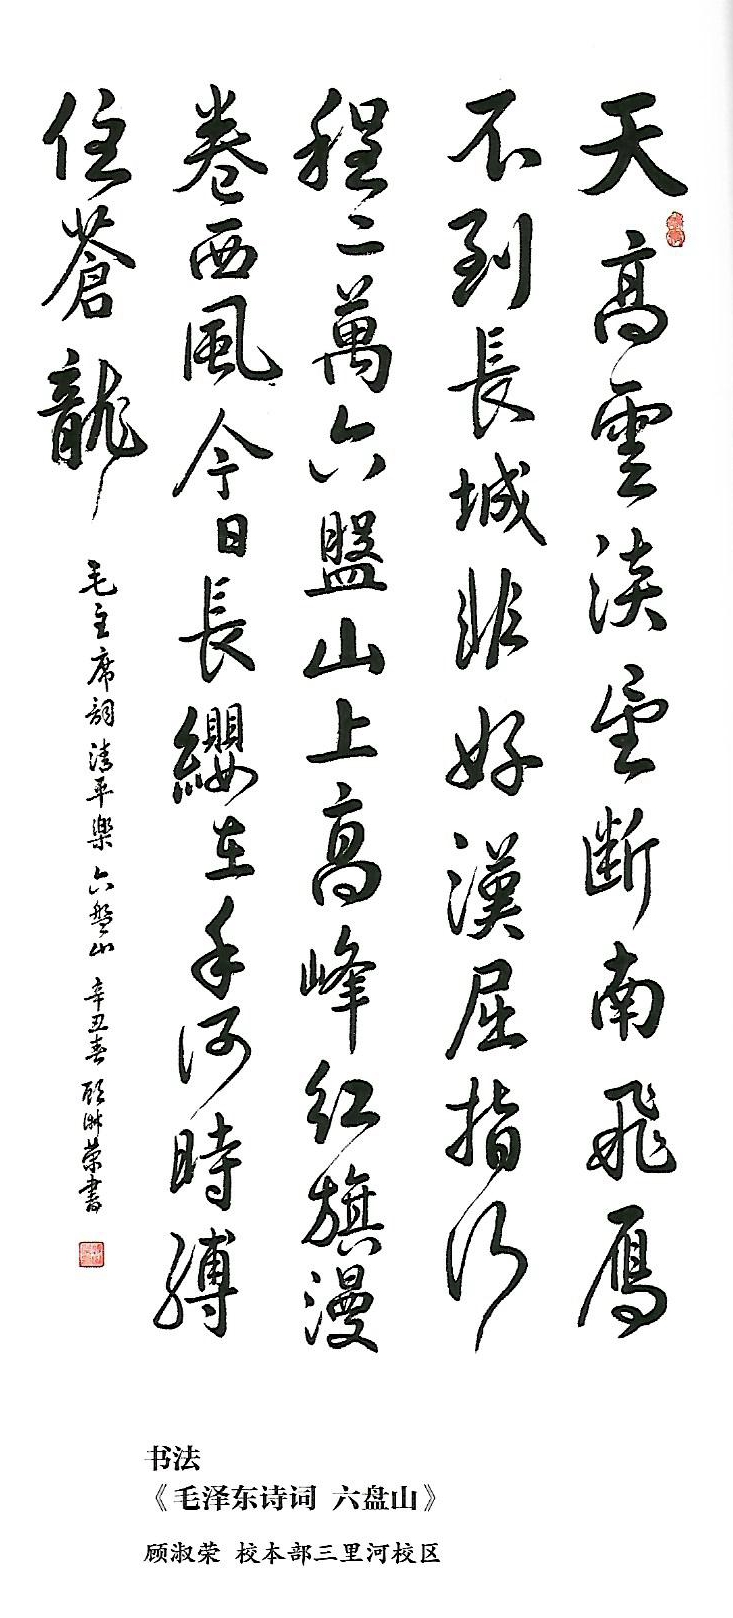 天高雲淡望断南飛雁
不到長城非好漢屈指行
程二萬六盤山上高峰红旗漫
卷西風今日長纓在手何時縛
住蒼龍
毛主席詞清平楽 六盤山 辛丑春 顾淑荣書
书法
《毛泽东诗词 六盘山》
顾淑荣 校本部三里河校区